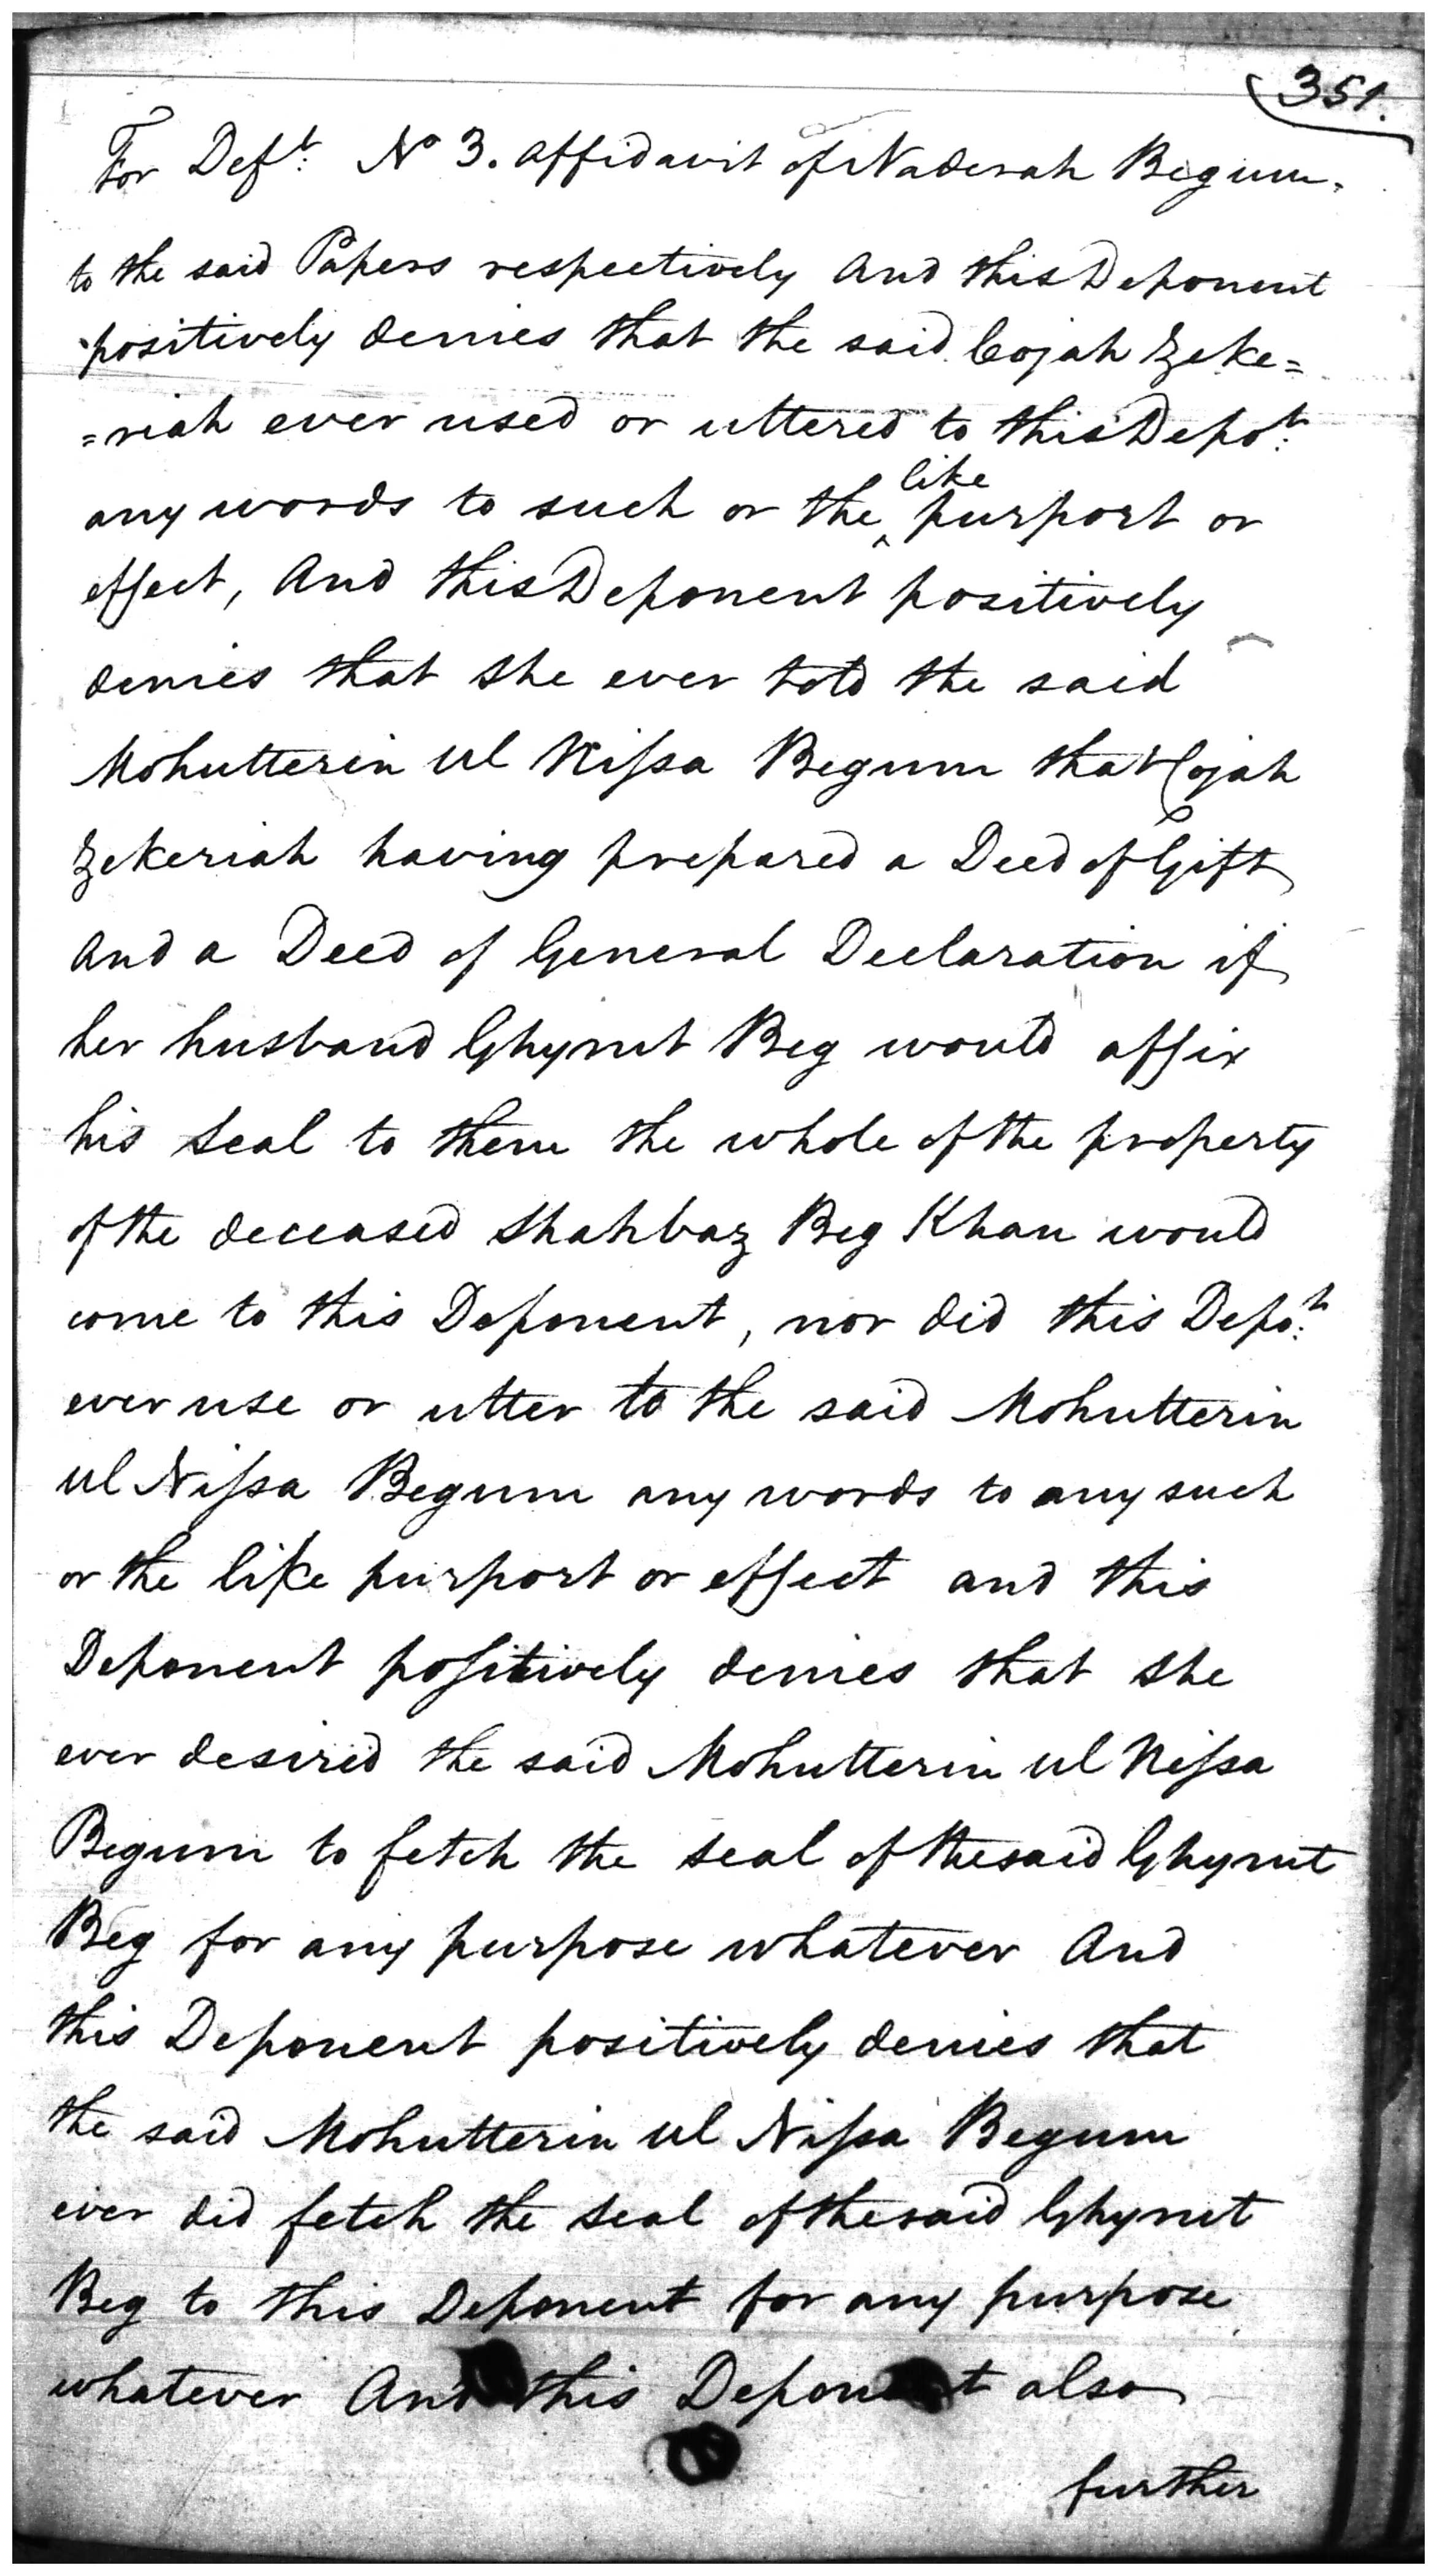 351.
For Deft: No 3. Affidavit of Naderah Begum.
to the said Papers respectively And this Deponent
positively denies that the said Cojah Zeke=
=riah ever used or uttered to this Depot:
any words to such or the like purport or
effect, And this Deponent positively
denies that she ever told the said
Mohutterin ul Nissa Begum that Cojah
Zekeriah having prepared a Deed of Gift
And a Deed of General Declaration if
her husband Ghyrut Beg would affix
his seal to them the whole of the property
of the deceased Shahbaz Beg Khan would
come to this Deponent, nor did this Depot:
ever use or utter to the said Mohutterin
ul Nissa Begum any words to any such
or the like purport or effect and this
Deponent positively denies that she
ever desired the said Mohutterin ul Nissa
Begum to fetch the seal of the said Ghyrut
Beg for any purpose whatever And
this Deponent positively denies that
the said Mohutterin ul Nissa Begum
ever did fetch the seal of the said Ghyrut
Beg to this Deponent for any purpose
whatever And this Deponent also
further